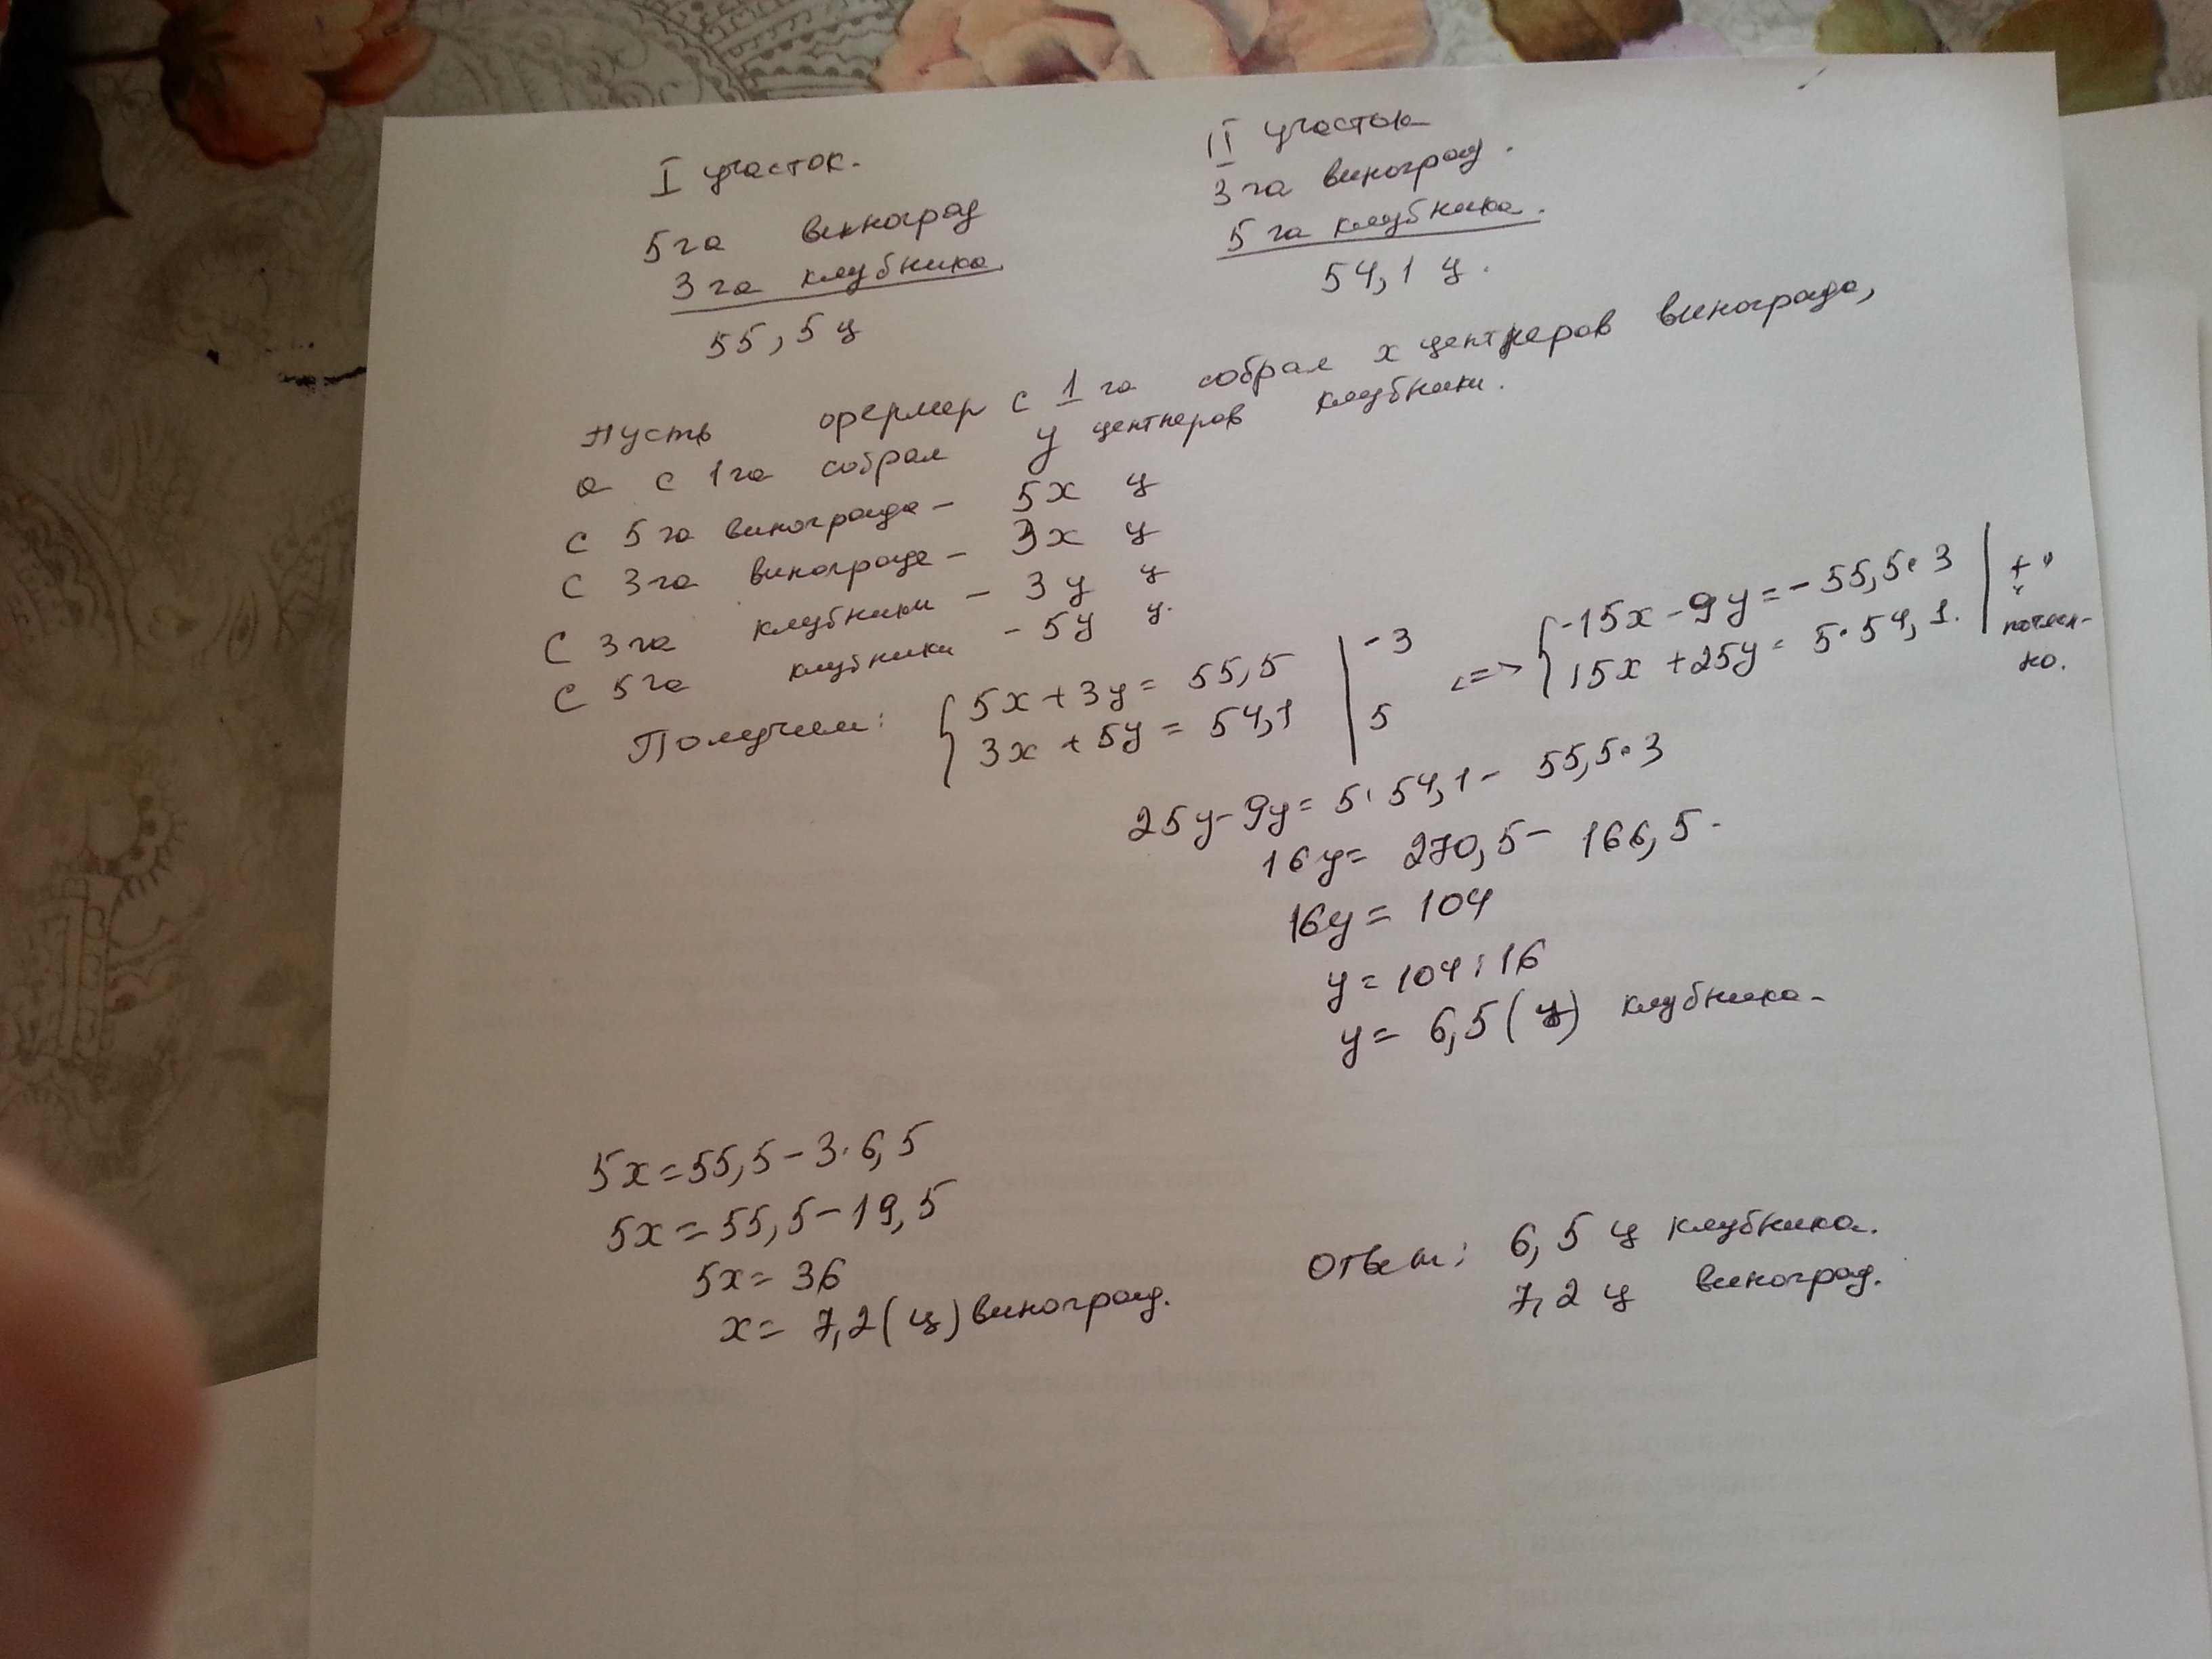 I участок.
5 га виноград
3 га клубника
55,5 ц
II участок
3 га виноград.
5 га клубника.
54,1 ц.
Пусть фермер с 1 га собрал x центнеров винограда,
а с 1 га собрал y центнеров клубники.
С 5 га винограда - 5x ц
С 3 га винограда - 3x ц
С 3 га клубники - 3y ц
С 5 га клубники - 5y ц.
Получим: { 5x + 3y = 55,5 | -3
3x + 5y = 54,1 | 5
<=> { -15x - 9y = -55,5·3 | "+"
15x + 25y = 5·54,1. | почлен-
но.
25y - 9y = 5·54,1 - 55,5·3
16y = 270,5 - 166,5.
16y = 104
y = 104:16
y = 6,5 (ц) клубника.
5x = 55,5 - 3·6,5
5x = 55,5 - 19,5
5x = 36
x = 7,2 (ц) виноград.
Ответ: 6,5 ц клубника.
7,2 ц виноград.